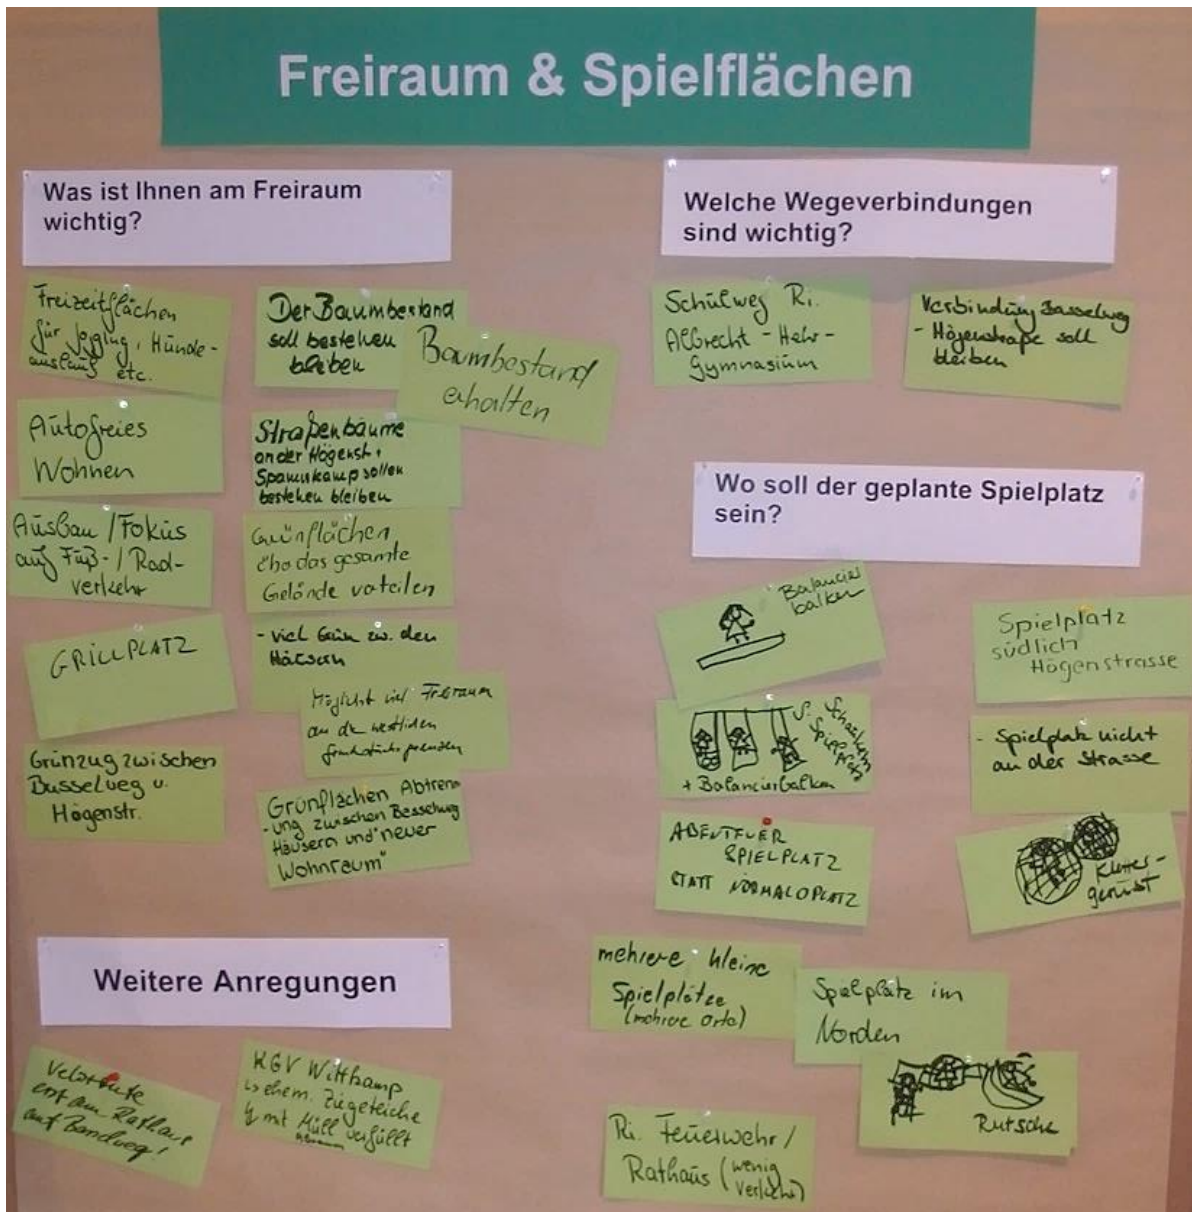 Freiraum & Spielflächen
Was ist Ihnen am Freiraum
wichtig?
Freizeitflächen
für Jogging, Hunde-
auslauf etc.
Der Baumbestand
soll bestehen
bleiben
Baumbestand
erhalten
Autofreies
Wohnen
Straßenbäume
an der Högenstr.
Spannskamp sollen
bestehen bleiben
Ausbau / Fokus
auf Fuß- / Rad-
verkehr
Grünflächen
das gesamte
Gelände verteilen
GRILLPLATZ
- viel Grün zw. den
Häusern
Möglichst viel Freiraum
an den westlichen
Grundstücksgrenzen
Grünzug zwischen
Basselweg u.
Högenstr.
Grünflächen Abtrenn
-ung zwischen Basselweg
Häusern und "neuer
Wohnraum"
Weitere Anregungen
Veloroute
erst am Rathaus
auf Bandweg!
KGV Wittkamp
ehem. Ziegeteiche
mit Müll verfüllt
Welche Wegeverbindungen
sind wichtig?
Schulweg Ri.
Albrecht - Hehr -
Gymnasium
Verbindung Basselweg
- Högenstraße soll
bleiben
Wo soll der geplante Spielplatz
sein?
Balancier
balken
Spielplatz
südlich
Högenstrasse
Schaukeln
Spielplatz
+ Balancierbalken
- Spielplatz nicht
an der Strasse
ABENTEUER
SPIELPLATZ
STATT NORMALOPLATZ
Kletter-
gerüst
mehrere kleine
Spielplätze
(mehrere Orte)
Spielplatz im
Norden
Rutsche
Ri. Feuerwehr /
Rathaus (wenig
Verkehr)